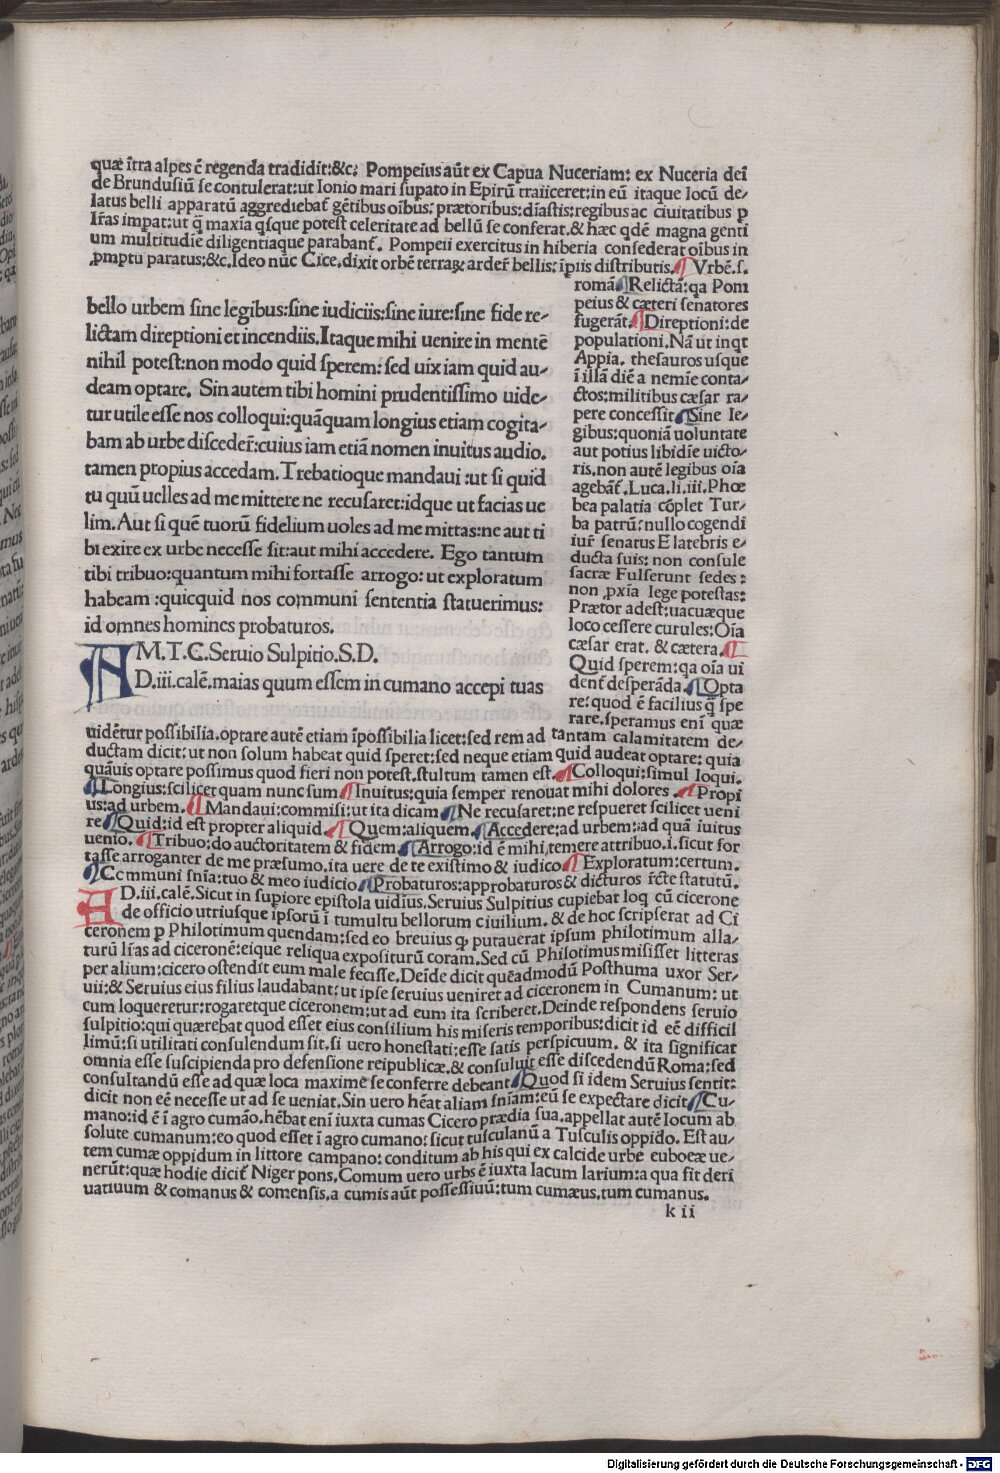 quæ ītra alpes ē regenda tradidit:&c. Pompeius aūt ex Capua Nuceriam: ex Nuceria deī
de Brundusiū se contulerat:ut Ionio mari supato in Epirū traiiceret:in eū itaque locū de-
latus belli apparatū aggrediebat̄ gētibus oībus: prætoribus:diastis:regibus ac ciuitatibus p
lr̄as impat:ut q̄ maxīa q̄sque potest celeritate ad bellū se conferat.& hæc qdē magna genti
um multitudīe diligentiaque parabant̄. Pompeii exercitus in hiberia consederat oībus in
ꝓmptu paratus:&c.Ideo nūc Cice.dixit orbē terraꝝ arder̄ bellis: īpiis distributis.¶Vrbē.s.
romā¶Relictā:qa Pom
peius & cæteri senatores
fugerāt.¶Direptioni:de
populationi.Nā ut inqt
Appia. thesauros usque
ī illā diē a nemīe conta-
ctos:militibus cæsar ra-
pere concessit¶Sine le-
gibus:quoniā uoluntate
aut potius libidīe uicto-
ris.non autē legibus oīa
agebāt̄.Luca.li.iii.Phœ
bea palatia cōplet Tur-
ba patrū:nullo cogendi
iur̄ senatus E latebris e-
ducta suis: non consule
sacræ Fulserunt sedes:
non ꝓxīa lege potestas:
Prætor adest:uacuæque
loco cessere curules:Oīa
cæsar erat. & cætera.¶
Quid sperem:qa oīa ui
dent̄ desperāda.¶Opta
re:quod ē facilius q̄ spe
rare.speramus enī quæ
bello urbem sine legibus:sine iudiciis:sine iure:sine fide re-
lictam direptioni et incendiis.Itaque mihi uenire in mentē
nihil potest:non modo quid sperem: sed uix iam quid au-
deam optare. Sin autem tibi homini prudentissimo uide-
tur utile esse nos colloqui:quāquam longius etiam cogita-
bam ab urbe disceder̄:cuius iam etiā nomen inuitus audio.
tamen propius accedam.Trebatioque mandaui :ut si quid
tu quū uelles ad me mittere ne recusaret:idque ut facias ue
lim.Aut si quē tuorū fidelium uoles ad me mittas:ne aut ti
bi exire ex urbe necesse sit:aut mihi accedere. Ego tantum
tibi tribuo:quantum mihi fortasse arrogo: ut exploratum
habeam :quicquid nos communi sententia statuerimus:
id omnes homines probaturos.
M.T.C.Seruio Sulpitio.S.D.
AD.iii.calē.maias quum essem in cumano accepi tuas
uidētur possibilia.optare autē etiam īpossibilia licet:sed rem ad tantam calamitatem de-
ductam dicit:ut non solum habeat quid speret:sed neque etiam quid audeat optare: quia
quāuis optare possimus quod fieri non potest.stultum tamen est.¶Colloqui:simul loqui.
¶Longius:scilicet quam nunc sum¶Inuitus:quia semper renouat mihi dolores .¶Propi
us:ad urbem.¶Mandaui:commisi:ut ita dicam¶Ne recusaret:ne respueret scilicet ueni
re¶Quid:id est propter aliquid.¶Quem:aliquem.¶Accedere:ad urbem:ad quā īuitus
uenio.¶Tribuo:do auctoritatem & fidem¶Arrogo:id ē mihi temere attribuo.i.sicut for
tasse arroganter de me præsumo.ita uere de te existimo & iudico¶Exploratum:certum.
¶Communi snīa:tuo & meo iudicio¶Probaturos:approbaturos& dicturos r̄cte statutū.
AD.iii.calē.Sicut in supiore epistola uidius.Seruius Sulpitius cupiebat loq̄ cū cicerone
de officio utriusque ipsorū ī tumultu bellorum ciuilium. & de hoc scripserat ad Ci
ceronem p Philotimum quendam:sed eo breuius ꝙ putauerat ipsum philotimum alla-
turū lr̄as ad ciceronē:eique reliqua expositurū coram.Sed cū Philotimus misisset litteras
per alium:cicero ostendit eum male fecisse.Deīde dicit quēadmodū Posthuma uxor Ser-
uii:& Seruius eius filius laudabant:ut ipse seruius ueniret ad ciceronem in Cumanum: ut
cum loqueretur:rogaretque ciceronem:ut ad eum ita scriberet.Deinde respondens seruio
sulpitio:qui quærebat quod esset eius consilium his miseris temporibus:dicit id eē difficil
limū:si utilitati consulendum sit.si uero honestati:esse satis perspicuum. & ita significat
omnia esse suscipienda pro defensione reipublicæ.& consuluit esse discedendū Roma:sed
consultandū esse ad quæ loca maxime se conferre debeant¶Quod si idem Seruius sentit:
dicit non eē necesse ut ad se ueniat.Sin uero hēat aliam snīam:eū se expectare dicit¶Cu-
mano:id ē ī agro cumāo.hēbat enī iuxta cumas Cicero prædia sua.appellat autē locum ab
solute cumanum:eo quod esset ī agro cumano:sicut tusculanū a Tusculis oppido. Est au-
tem cumæ oppidum in littore campano: conditum ab his qui ex calcide urbe euboeæ ue-
nerūt:quæ hodie dicit̄ Niger pons.Comum uero urbs ē iuxta lacum larium:a qua fit deri
uatiuum & comanus & comensis.a cumis aūt possessiuū:tum cumæus.tum cumanus.
k ii
Digitalisierung gefördert durch die Deutsche Forschungsgemeinschaft - DFG